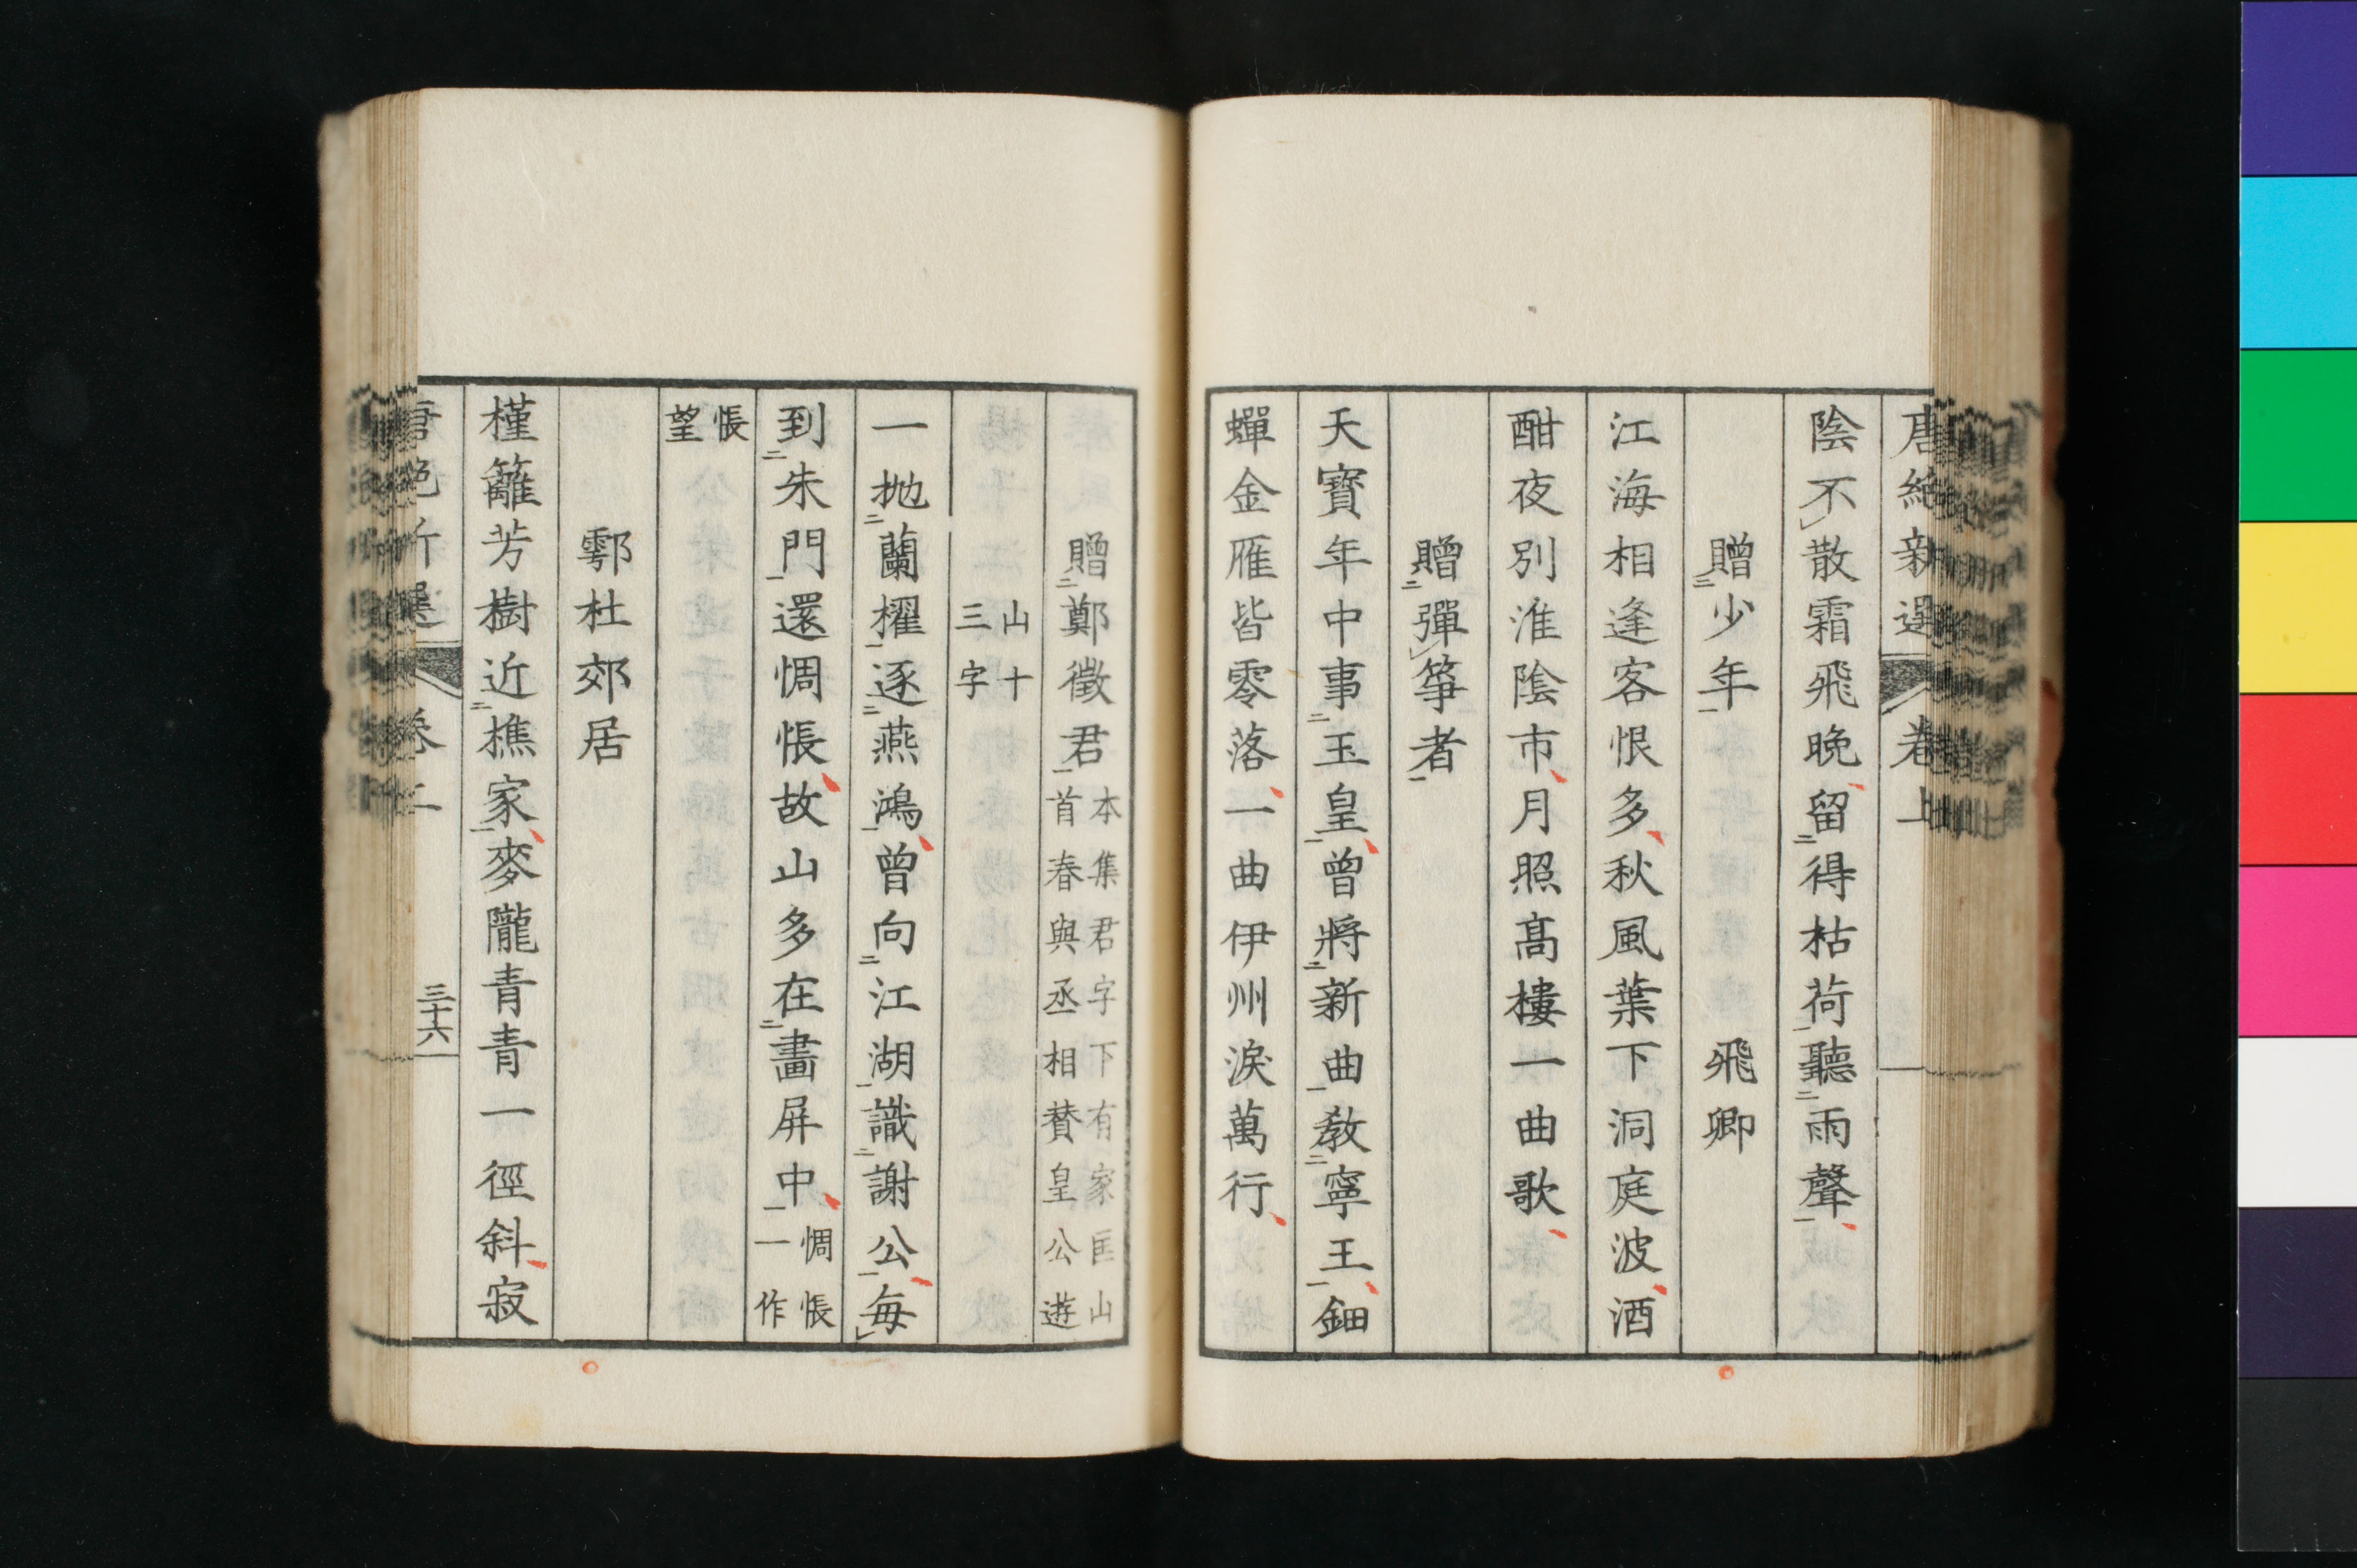 唐絶新選 卷上
陰不散霜飛晚留得枯荷聽雨聲
贈少年 飛卿
江海相逢客恨多秋風葉下洞庭波酒
酣夜別淮陰市月照高樓一曲歌
贈彈箏者
天寶年中事玉皇曾將新曲敎寧王鈿
蟬金雁皆零落一曲伊州淚萬行
贈鄭徵君 本集君字下有家匡山
首春與丞相賛皇公遊
山十
三字
一抛蘭櫂逐燕鴻曾向江湖識謝公每
到朱門還惆悵故山多在畫屏中 惆悵
一作
悵
望
鄠杜郊居
槿籬芳樹近樵家麥隴靑靑一徑斜寂
三十六